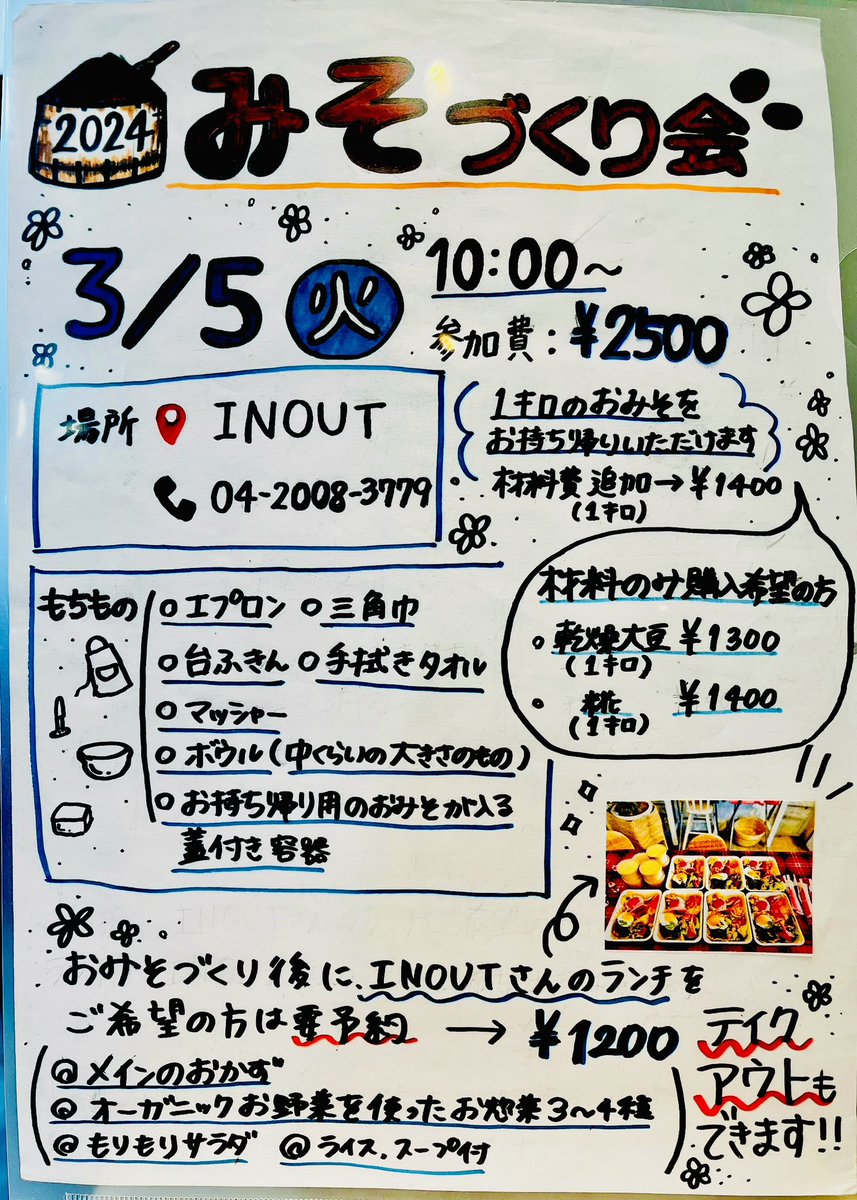 2024
みそづくり会
3/5 火
10:00〜
参加費：¥2500
場所 INOUT
04-2008-3779
1キロのおみそを
お持ち帰りいただけます
材料費 追加→¥1400
(1キロ)
材料のみ購入希望の方
○ 乾燥大豆 ¥1300
(1キロ)
○ 糀 ¥1400
(1キロ)
もちもの
○ エプロン ○ 三角巾
○ 台ふきん ○ 手拭きタオル
○ マッシャー
○ ボウル(中くらいの大きさのもの)
○ お持ち帰り用のおみそが入る
蓋付き容器
おみそづくり後に、INOUTさんのランチを
ご希望の方は要予約 → ¥1200
テイク
アウトも
できます!!
@ メインのおかず
@ オーガニックお野菜を使ったお惣菜3〜4種
@ もりもりサラダ @ ライス、スープ付